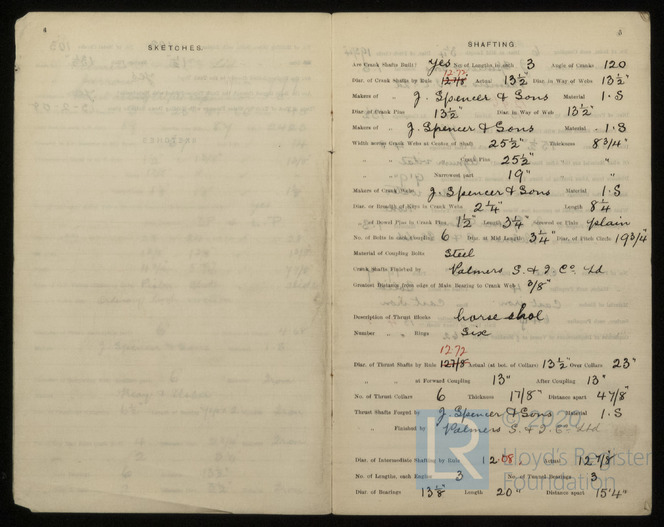 4
SKETCHES.
5
SHAFTING
Are Crank Shafts Built? yes No. of Lengths in each 3 Angle of Cranks 120
12.72
Diar. of Crank Shafts by Rule 12 7/8 Actual 13 1/2" Diar. in Way of Webs 13 1/2"
Makers of " J. Spencer & Sons Material I.S
Diar. of Crank Pins 13 1/2" Diar. in Way of Web 13 1/2"
Makers of " J. Spencer & Sons Material I.S
Width across Crank Webs at Centre of Shaft 25 1/2" Thickness 8 3/4"
" " Crank Pins 25 1/2" "
" " Narrowest part 19" "
Makers of Crank Webs J. Spencer & Sons Material I.S
Diar. or Breadth of Keys in Crank Webs 2 1/4" Length 8 1/4
" of Dowel Pins in Crank Pins 1 1/2" Length 3 1/4" Screwed or Plain plain
No. of Bolts in each Coupling 6 Diar. at Mid Length 3 1/4" Diar. of Pitch Circle 19 3/4"
Material of Coupling Bolts Steel
Crank Shafts Finished by Palmers S. & I. Co. Ld
Greatest Distance from edge of Main Bearing to Crank Web 3/8"
Description of Thrust Blocks horse shoe
Number " " Rings Six
12.72
Diar. of Thrust Shafts by Rule 12 7/8 Actual (at bot. of Collars) 13 1/2" Over Collars 23"
" " at Forward Coupling 13" After Coupling 13"
No. of Thrust Collars 6 Thickness 1 7/8" Distance apart 4 7/8"
Thrust Shafts Forged by J. Spencer & Sons Material I.S
" Finished by Palmers S. & I. Co. Ltd
Diar. of Intermediate Shafting by Rule 12.08 Actual 12 7/8"
No. of Lengths, each Engine 3 No. of Tunnel Bearings 3
Diar. of Bearings 13 1/8" Length 20" Distance apart 15'4"
© 2020
LR
Lloyd's Register
Foundation